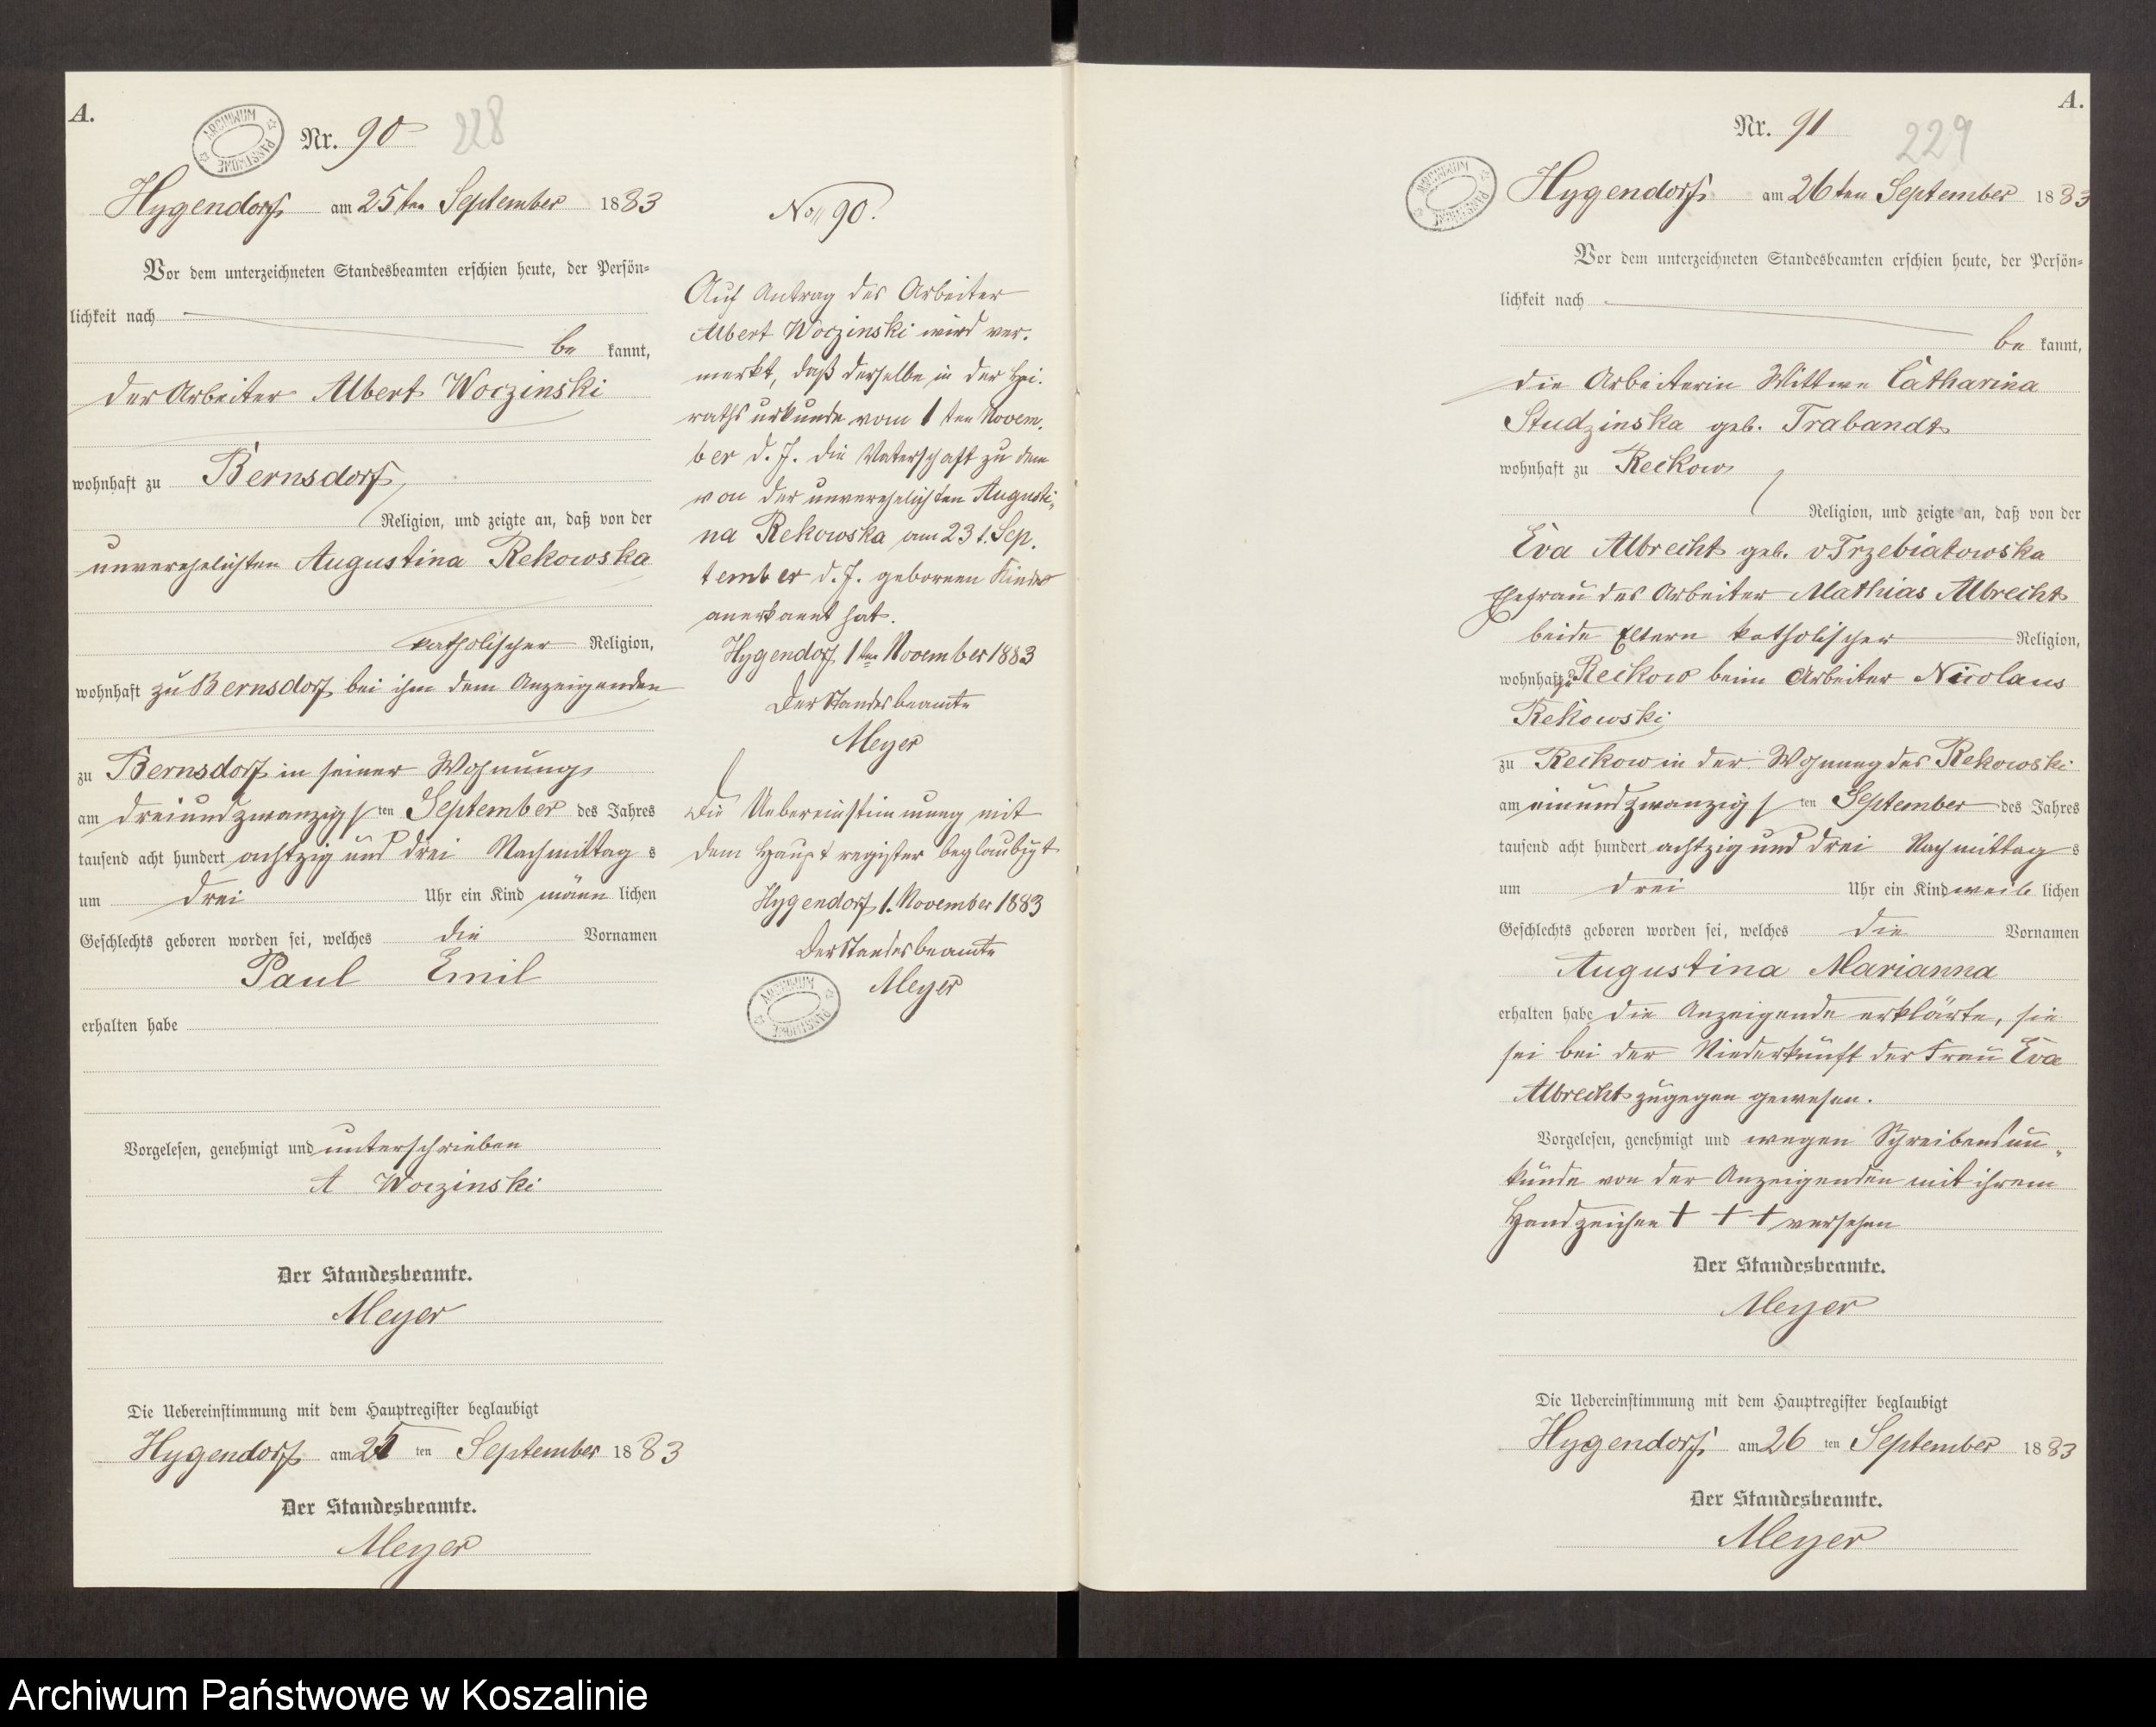 A.
ARCHIWUM PAŃSTWOWE
Nr. 90
228
Hygendorf am 25ten September 1883
Vor dem unterzeichneten Standesbeamten erschien heute, der Persön=
lichkeit nach
be kannt,
der Arbeiter Albert Woczinski
wohnhaft zu Bernsdorf,
Religion, und zeigte an, daß von der
unverehelichten Augustina Rekowska
katholischer Religion,
wohnhaft zu Bernsdorf bei ihm dem Anzeigenden
zu Bernsdorf in seiner Wohnung
am dreiundzwanzigsten September des Jahres
tausend acht hundert achtzig und drei Nachmittags
um drei Uhr ein Kind männlichen
Geschlechts geboren worden sei, welches die Vornamen
Paul Emil
erhalten habe
Vorgelesen, genehmigt und unterschrieben
A Woczinski
Der Standesbeamte.
Meyer
Die Uebereinstimmung mit dem Hauptregister beglaubigt
Hygendorf am 25 ten September 1883
Der Standesbeamte.
Meyer
No 90.
Auf Antrag des Arbeiter
Albert Woczinski wird ver-
merkt, daß derselbe in der Hei-
rathsurkunde vom 1ten Novem-
ber d. J. die Vaterschaft zu dem
von der unverehelichten Augusti-
na Rekowska am 23t. Sep-
tember d. J. geborenen Kinde
anerkannt hat.
Hygendorf 1ten November 1883
Der Standesbeamte
Meyer
Die Uebereinstimmung mit
dem Hauptregister beglaubigt
Hygendorf 1. November 1883
Der Standesbeamte
Meyer
ARCHIWUM PAŃSTWOWE
A.
Nr. 91
229
ARCHIWUM PAŃSTWOWE
Hygendorf am 26ten September 1883
Vor dem unterzeichneten Standesbeamten erschien heute, der Persön=
lichkeit nach
be kannt,
die Arbeiterin Wittwe Catharina
Studzinska geb. Trabandt
wohnhaft zu Reckow
Religion, und zeigte an, daß von der
Eva Albrecht geb. v Trzebiatowska
Ehefrau des Arbeiter Mathias Albrecht
beide Eltern katholischer Religion,
wohnhaft zu Reckow beim Arbeiter Nicolaus
Rekowski
zu Reckow in der Wohnung des Rekowski
am einundzwanzigsten September des Jahres
tausend acht hundert achtzig und drei Nachmittags
um drei Uhr ein Kind weiblichen
Geschlechts geboren worden sei, welches die Vornamen
Augustina Marianna
erhalten habe die Anzeigende erklärte, sie
sei bei der Niederkunft der Frau Eva
Albrecht zugegen gewesen.
Vorgelesen, genehmigt und wegen Schreibensun-
kunde von der Anzeigenden mit ihrem
Handzeichen + + + versehen
Der Standesbeamte.
Meyer
Die Uebereinstimmung mit dem Hauptregister beglaubigt
Hygendorf am 26 ten September 1883
Der Standesbeamte.
Meyer
Archiwum Państwowe w Koszalinie